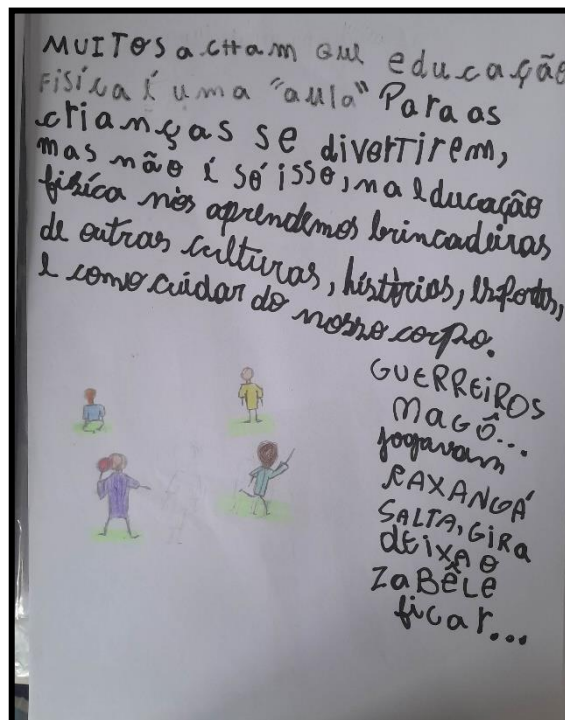 MUITOS ACHAM QUE educação
FISÍCA É uma "aula" Para as
crianças se divertirem,
mas não é só isso, na educação
fisíca nós aprendemos brincadeiras
de outras culturas, histórias, esportes,
e como cuidar do nosso corpo.
GUERREIROS
MAGÔ...
jogavam
RAXANGÁ
SALTA, GIRA
dEIXA O
ZABÊLE
ficar...